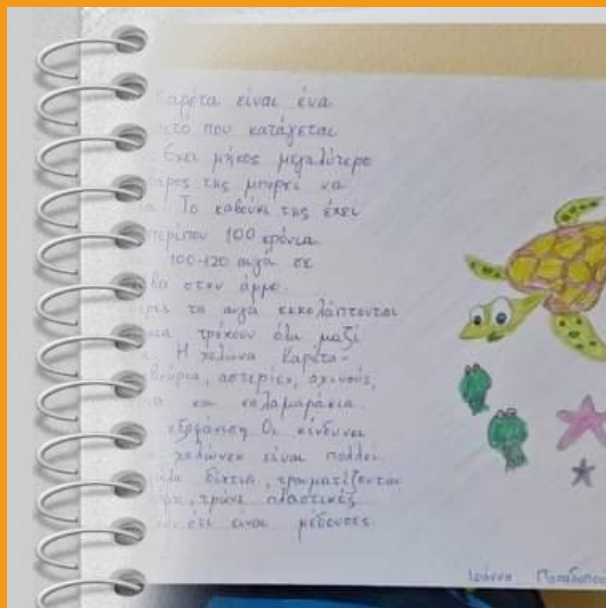 Καρέτα είναι ένα
που κατάγεται
Έχει μήκος μεγαλύτερο
της μπορεί να
Το καβούκι της έχει
περίπου 100 χρόνια
100-120 αυγά σε
στην άμμο.
τα αυγά εκκολάπτονται
τρέχουν όλα μαζί
Η χελώνα Καρέτα-
αστερίες, αχινούς,
και καλαμαράκια.
εξαφάνιση Οι κίνδυνοι
χελώνες είναι πολλοί
δίχτυα, τραυματίζονται
τρώνε πλαστικές
ότι είναι μέδουσες.
Ιωάννα